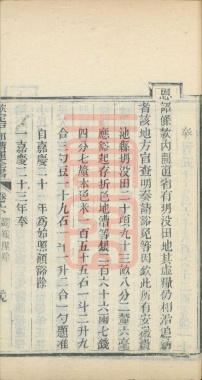 恩詔條款內開道省有坍沒田地其虛糧仍相沿追納
者該地方官查明奏請豁免等因欽此所有安徽貴
池縣坍沒田二十頃九十三畝八分二釐六毫
應豁起存折色地漕等銀二百六十六兩七錢
四分七釐本色米一百五十五石一斗二升九
合三勺豆二十九石一斗一升二合一勺題准
自嘉慶二十一年為始照額豁除
一嘉慶二十三年奉
蠲賑豁除